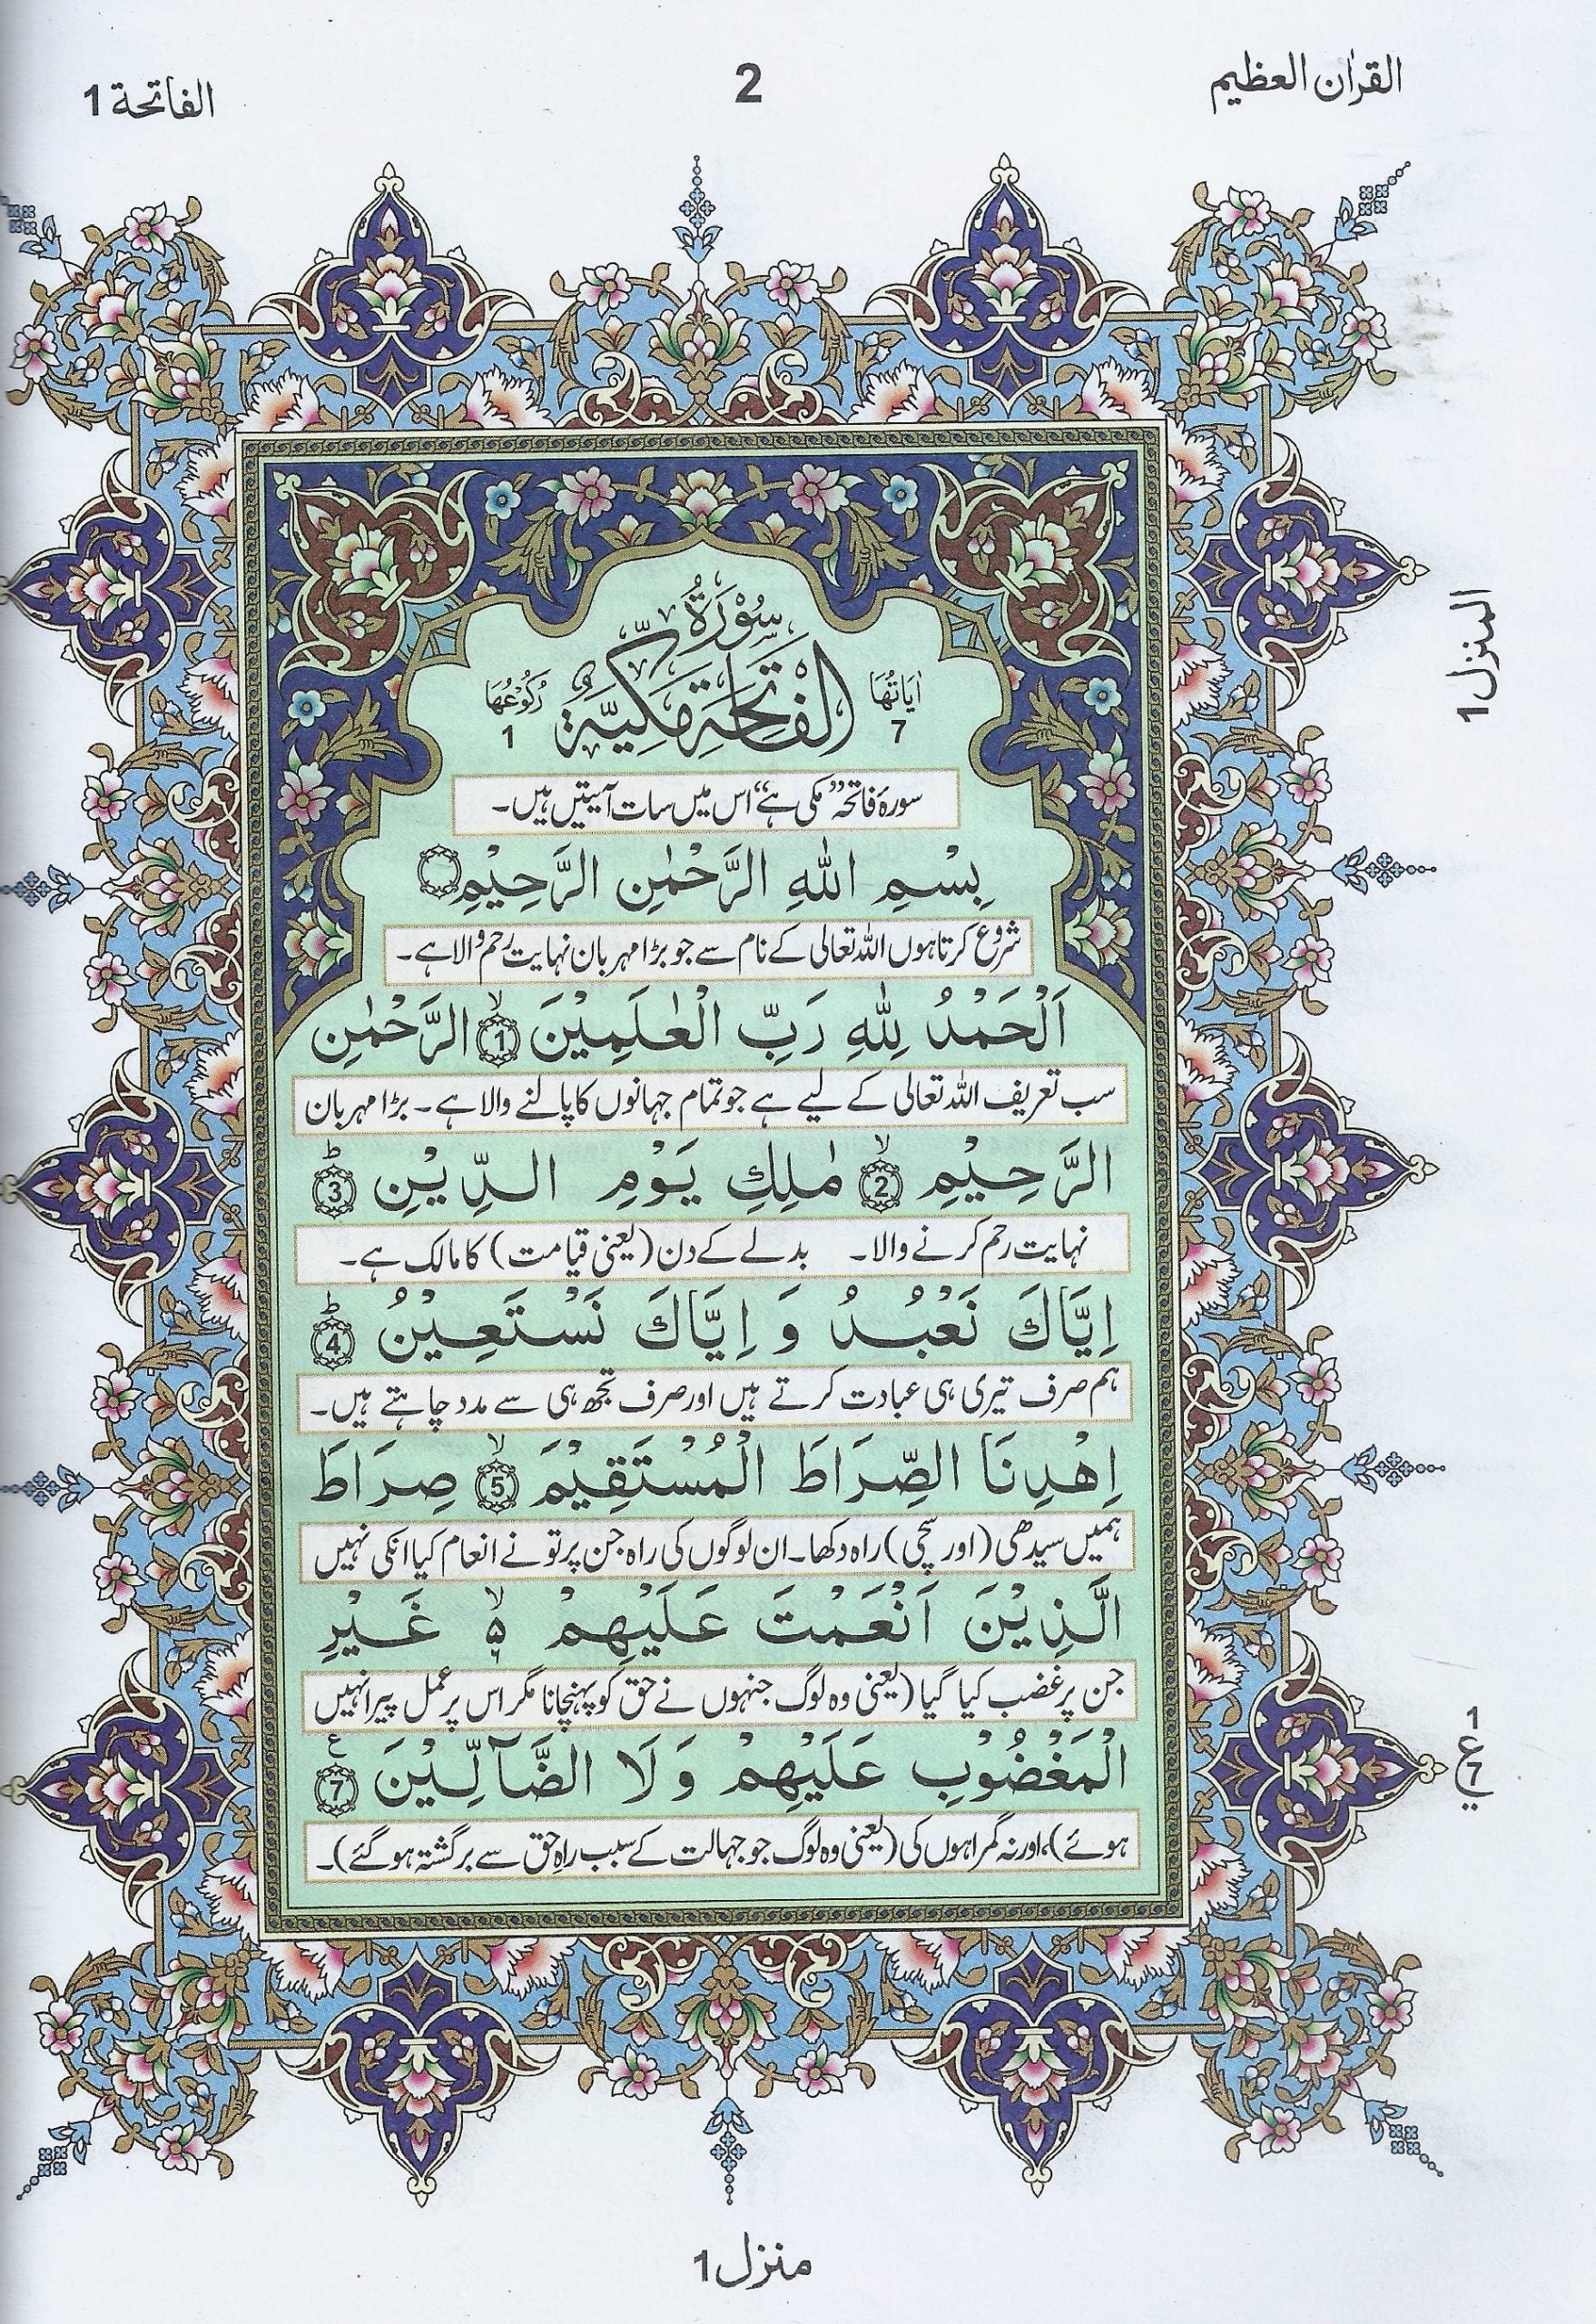 القرٰان العظيم
2
الفاتحة 1
المنزل 1
سُوْرَةُ
اٰيَاتُهَا
7
الْفَاتِحَةِ مَكِّيَّةٌ
رُكُوْعُهَا
1
سورۂ فاتحہ ”مکی ہے“ اس میں سات آیتیں ہیں۔
بِسْمِ اللهِ الرَّحْمٰنِ الرَّحِيْمِ
شروع کرتا ہوں اللہ تعالی کے نام سے جو بڑا مہربان نہایت رحم والا ہے۔
اَلْحَمْدُ لِلّٰهِ رَبِّ الْعٰلَمِيْنَ ۙ 1 الرَّحْمٰنِ
سب تعریف اللہ تعالی کے لیے ہے جو تمام جہانوں کا پالنے والا ہے۔ بڑا مہربان
الرَّحِيْمِ ۙ 2 مٰلِكِ يَوْمِ الدِّيْنِ ؕ 3
نہایت رحم کرنے والا۔ بدلے کے دن (یعنی قیامت) کا مالک ہے۔
اِيَّاكَ نَعْبُدُ وَ اِيَّاكَ نَسْتَعِيْنُ ؕ 4
ہم صرف تیری ہی عبادت کرتے ہیں اور صرف تجھ ہی سے مدد چاہتے ہیں۔
اِهْدِنَا الصِّرَاطَ الْمُسْتَقِيْمَ ۙ 5 صِرَاطَ
ہمیں سیدھی (اور سچی) راہ دکھا۔ ان لوگوں کی راہ جن پر تو نے انعام کیا انکی نہیں
الَّذِيْنَ اَنْعَمْتَ عَلَيْهِمْ ۙ ۵ غَيْرِ
جن پر غضب کیا گیا (یعنی وہ لوگ جنہوں نے حق کو پہنچانا مگر اس پر عمل پیرا نہیں
الْمَغْضُوْبِ عَلَيْهِمْ وَ لَا الضَّآلِّيْنَ ع 7
ہوئے)، اور نہ گمراہوں کی (یعنی وہ لوگ جو جہالت کے سبب راہ حق سے برگشتہ ہو گئے)۔
1
ع
7
منزل 1